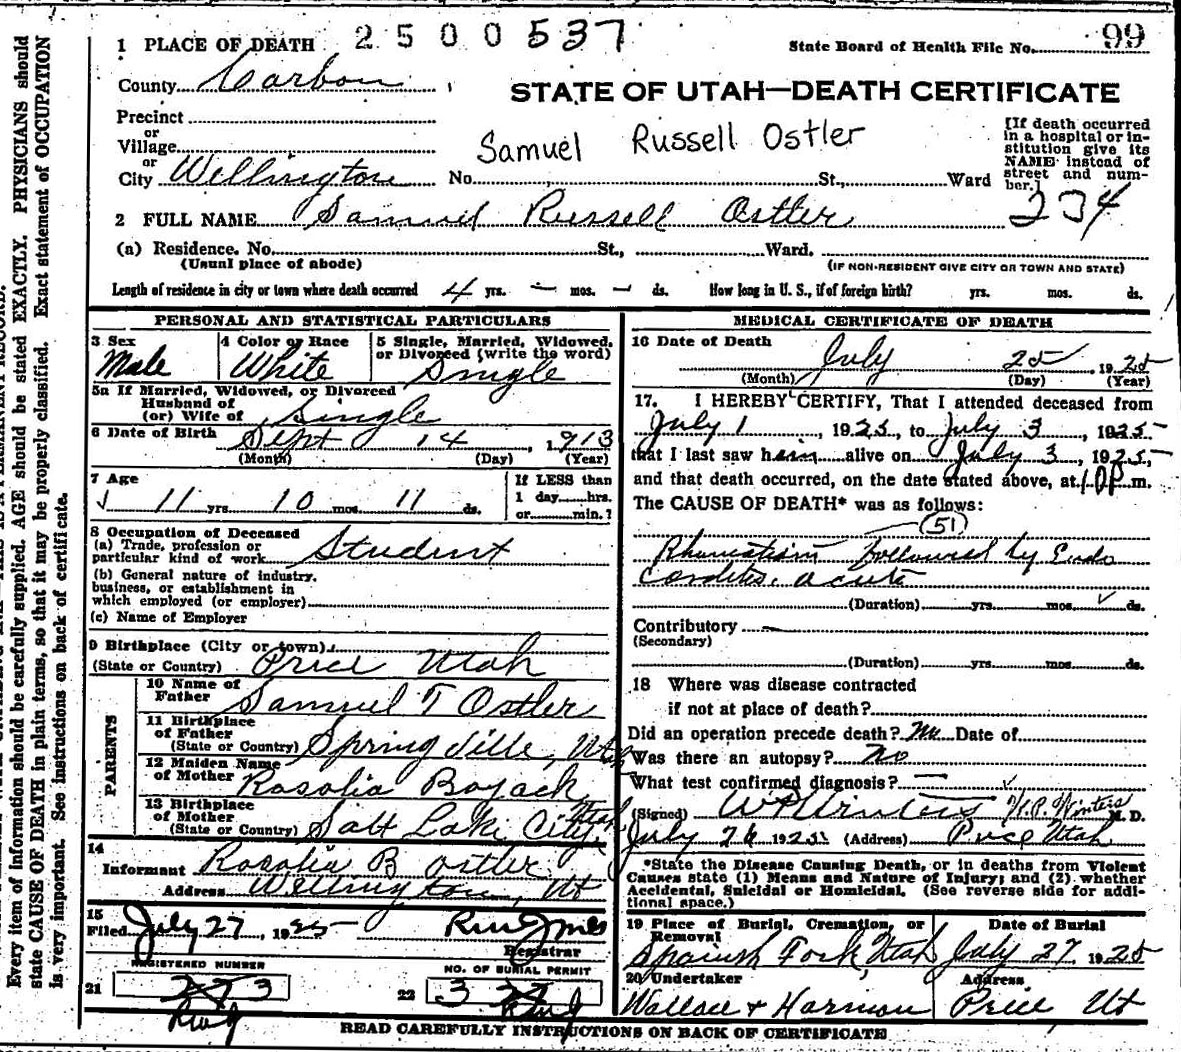 1 PLACE OF DEATH 2500537
State Board of Health File No. 99
County Carbon
STATE OF UTAH—DEATH CERTIFICATE
Precinct
or
Village
or
City Wellington No. St., Ward
Samuel Russell Ostler
[If death occurred
in a hospital or in-
stitution give its
NAME instead of
street and num-
ber.]
234
2 FULL NAME Samuel Russell Ostler
(a) Residence. No. St., Ward.
(Usual place of abode) (IF NON-RESIDENT GIVE CITY OR TOWN AND STATE)
Length of residence in city or town where death occurred 4 yrs. — mos. — ds. How long in U. S., if of foreign birth? yrs. mos. ds.
PERSONAL AND STATISTICAL PARTICULARS
3 Sex
Male
4 Color or Race
White
5 Single, Married, Widowed,
or Divorced (write the word)
Single
5a If Married, Widowed, or Divorced
Husband of
(or) Wife of Single
6 Date of Birth Sept 14 1913
(Month) (Day) (Year)
7 Age
11 yrs 10 mos 11 ds.
If LESS than
1 day hrs.
or min.?
8 Occupation of Deceased
(a) Trade, profession or
particular kind of work Student
(b) General nature of industry.
business, or establishment in
which employed (or employer)
(c) Name of Employer
9 Birthplace (City or town)
(State or Country) Price Utah
PARENTS
10 Name of
Father Samuel T Ostler
11 Birthplace
of Father
(State or Country) Springville, Utah
12 Maiden Name
of Mother Rosalia Boyack
13 Birthplace
of Mother
(State or Country) Salt Lake City, Utah
14
Informant Rosalia B Ostler
Address Wellington, Ut
15
Filed July 27, 1925
Registrar
REGISTERED NUMBER
21
NO. OF BURIAL PERMIT
22
MEDICAL CERTIFICATE OF DEATH
16 Date of Death July 25, 1925
(Month) (Day) (Year)
17. I HEREBY CERTIFY, That I attended deceased from
July 1, 1925, to July 3, 1925
that I last saw him alive on July 3, 1925,
and that death occurred, on the date stated above, at 10P m.
The CAUSE OF DEATH* was as follows:
(51)
Rhumatism followed by Endo
carditis, acute
(Duration) yrs. mos. ds.
Contributory —
(Secondary)
(Duration) yrs. mos. ds.
18 Where was disease contracted
if not at place of death?
Did an operation precede death? No Date of
Was there an autopsy? No
What test confirmed diagnosis? —
(Signed) W.P. Winters M. D.
July 26 1925 (Address) Price Utah
*State the Disease Causing Death, or in deaths from Violent
Causes state (1) Means and Nature of Injury; and (2) whether
Accidental, Suicidal or Homicidal. (See reverse side for addi-
tional space.)
19 Place of Burial, Cremation, or
Removal
Spanish Fork, Utah
Date of Burial
July 27, 1925
20 Undertaker
Wallace & Harmon
Address
Price, Ut
READ CAREFULLY INSTRUCTIONS ON BACK OF CERTIFICATE
Every item of information should be carefully supplied. AGE should be stated EXACTLY. PHYSICIANS should
state CAUSE OF DEATH in plain terms, so that it may be properly classified. Exact statement of OCCUPATION
is very important. See instructions on back of certificate.